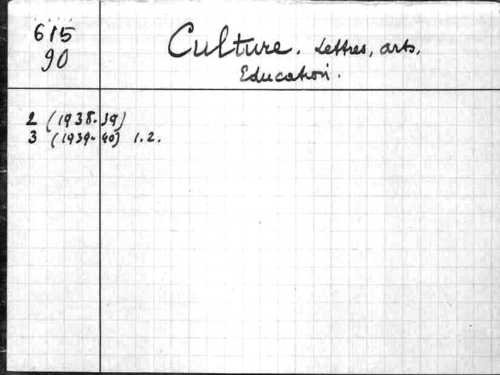 615
90
Culture. Lettres, arts,
Education.
2 (1938-39)
3 (1939-40) 1.2.